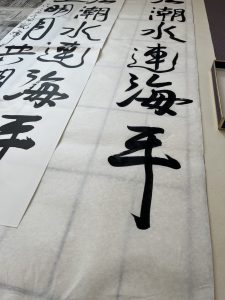 潮水連海平
潮水連海平
明月共潮